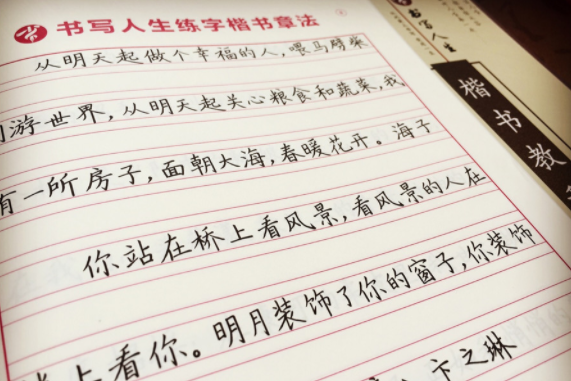 书写人生练字楷书章法
从明天起做个幸福的人,喂马劈柴
游世界,从明天起关心粮食和蔬菜,我
有一所房子,面朝大海,春暖花开。海子
你站在桥上看风景,看风景的人在
上看你。明月装饰了你的窗子,你装饰
卞之琳
书写人生
楷书教